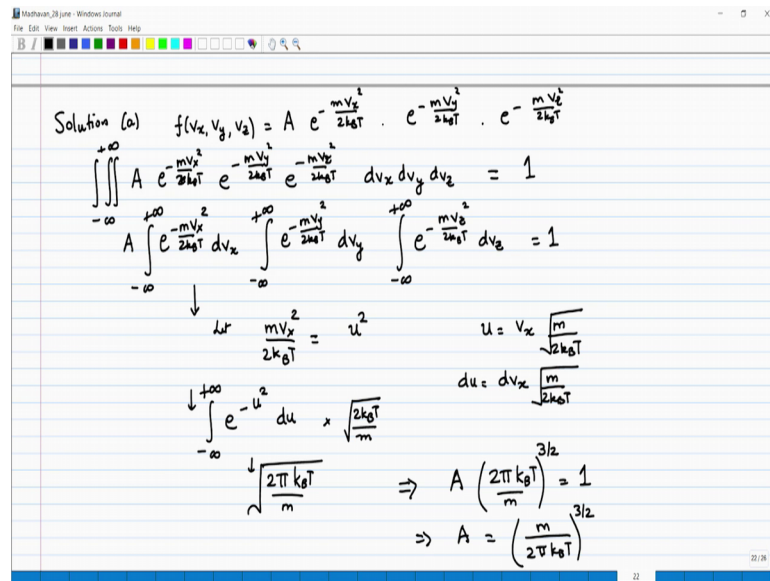 Madhavan_28 june - Windows Journal
File Edit View Insert Actions Tools Help
B I
Solution (a) f(vx, vy, vz) = A e^(-mvx²/2kBT) . e^(-mvy²/2kBT) . e^(-mvz²/2kBT)
∭_(-∞)^(+∞) A e^(-mvx²/2kBT) e^(-mvy²/2kBT) e^(-mvz²/2kBT) dvx dvy dvz = 1
A ∫_(-∞)^(+∞) e^(-mvx²/2kBT) dvx ∫_(-∞)^(+∞) e^(-mvy²/2kBT) dvy ∫_(-∞)^(+∞) e^(-mvz²/2kBT) dvz = 1
↓ Let mvx²/2kBT = u² u = vx √(m/2kBT)
du = dvx √(m/2kBT)
↓ ∫_(-∞)^(+∞) e^(-u²) du × √(2kBT/m)
↓ √(2πkBT/m) ⇒ A (2πkBT/m)^(3/2) = 1
⇒ A = (m/2πkBT)^(3/2)
22/26
22